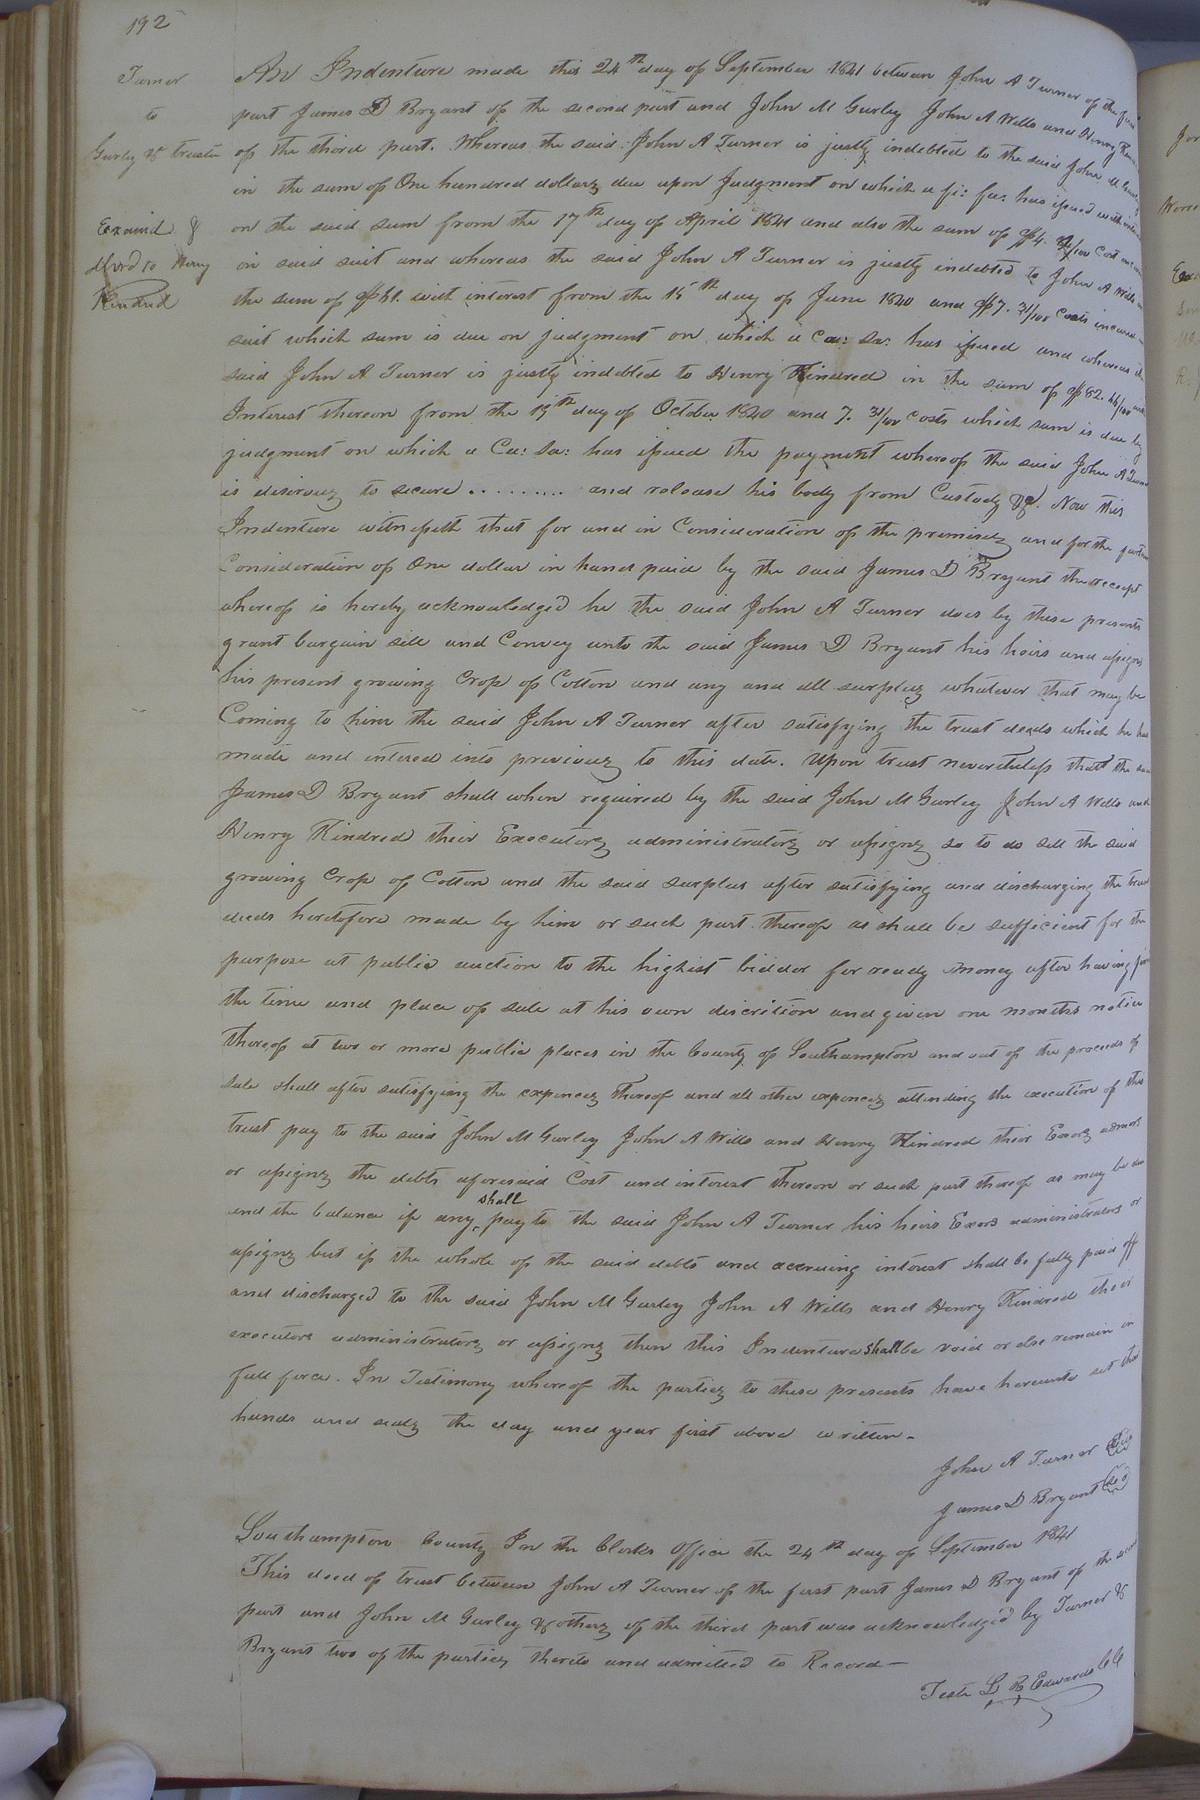 192
Turner
to
Gurley & trustee
Examind &
dlivrd to Henry
Kindred
An Indenture made this 24th day of September 1841 between John A Turner of the first
part James D Bryant of the second part and John M Gurley John A Wills and Henry
of the third part. Whereas the said John A Turner is justly indebted to the said John M Gurley
in the sum of One hundred dollars due upon Judgment on which a fi: fa: has issued with interest
on the said sum from the 17th day of April 1841 and also the sum of $4. /100 Cost
on said suit and whereas the said John A Turner is justly indebted to John A Wills in
the sum of with interest from the 15th day of June 1840 and $7. 31/100 Costs incured
suit which sum is due on judgment on which a Ca: sa: has issued and whereas the
said John A Turner is justly indebted to Henry Kindred in the sum of $82. 66/100 with
Interest thereon from the 19th day of October 1840 and 7. 31/100 Costs which sum is due by
judgment on which a Ca: Sa: has issued the payment whereof the said John A Turner
is desirous to secure .......... and release his body from Custody &c. Now this
Indenture witnesseth that for and in Consideration of the premises and for the further
Consideration of One dollar in hand paid by the said James D Bryant the receipt
whereof is hereby acknowledged he the said John A Turner does by these presents
grant bargain sell and Convey unto the said James D Bryant his heirs and assigns
his present growing Crop of Cotton and any and all surplus whatever that may be
Coming to him the said John A Turner after satisfying the trust deeds which he has
made and entered into previous to this date. Upon trust nevertheless that the said
James D Bryant shall when required by the said John M Gurley John A Wills and
Henry Kindred their Executors administrators or assigns so to do sell the said
growing Crop of Cotton and the said surplus after satisfying and discharging the trust
deeds heretofore made by him or such part thereof as shall be sufficient for the
purpose at public auction to the highest bidder for ready money after having fixed
the time and place of sale at his own discretion and given one months notice
thereof at two or more public places in the County of Southampton and out of the proceeds of
sale shall after satisfying the expences thereof and all other expences attending the execution of this
trust pay to the said John M Gurley John A Wills and Henry Kindred their Exors admors
or assigns the debts aforesaid Cost and interest thereon or such part thereof as may be due
and the balance if any shall pay to the said John A Turner his heirs Exors administrators or
assigns but if the whole of the said debts and accruing interest shall be fully paid off
and discharged to the said John M Gurley John A Wills and Henry Kindred their
executors administrators or assigns then this Indenture shall be void or else remain in
full force. In Testimony whereof the parties to these presents have hereunto set their
hands and seals the day and year first above written.
John A Turner
James D Bryant
Southampton County In the Clerks Office the 24th day of September 1841
This deed of trust between John A Turner of the first part James D Bryant of the second
part and John M Gurley & others of the third part was acknowledged by Turner &
Bryant two of the parties thereto and admitted to Record—
Teste L R Edwards CC